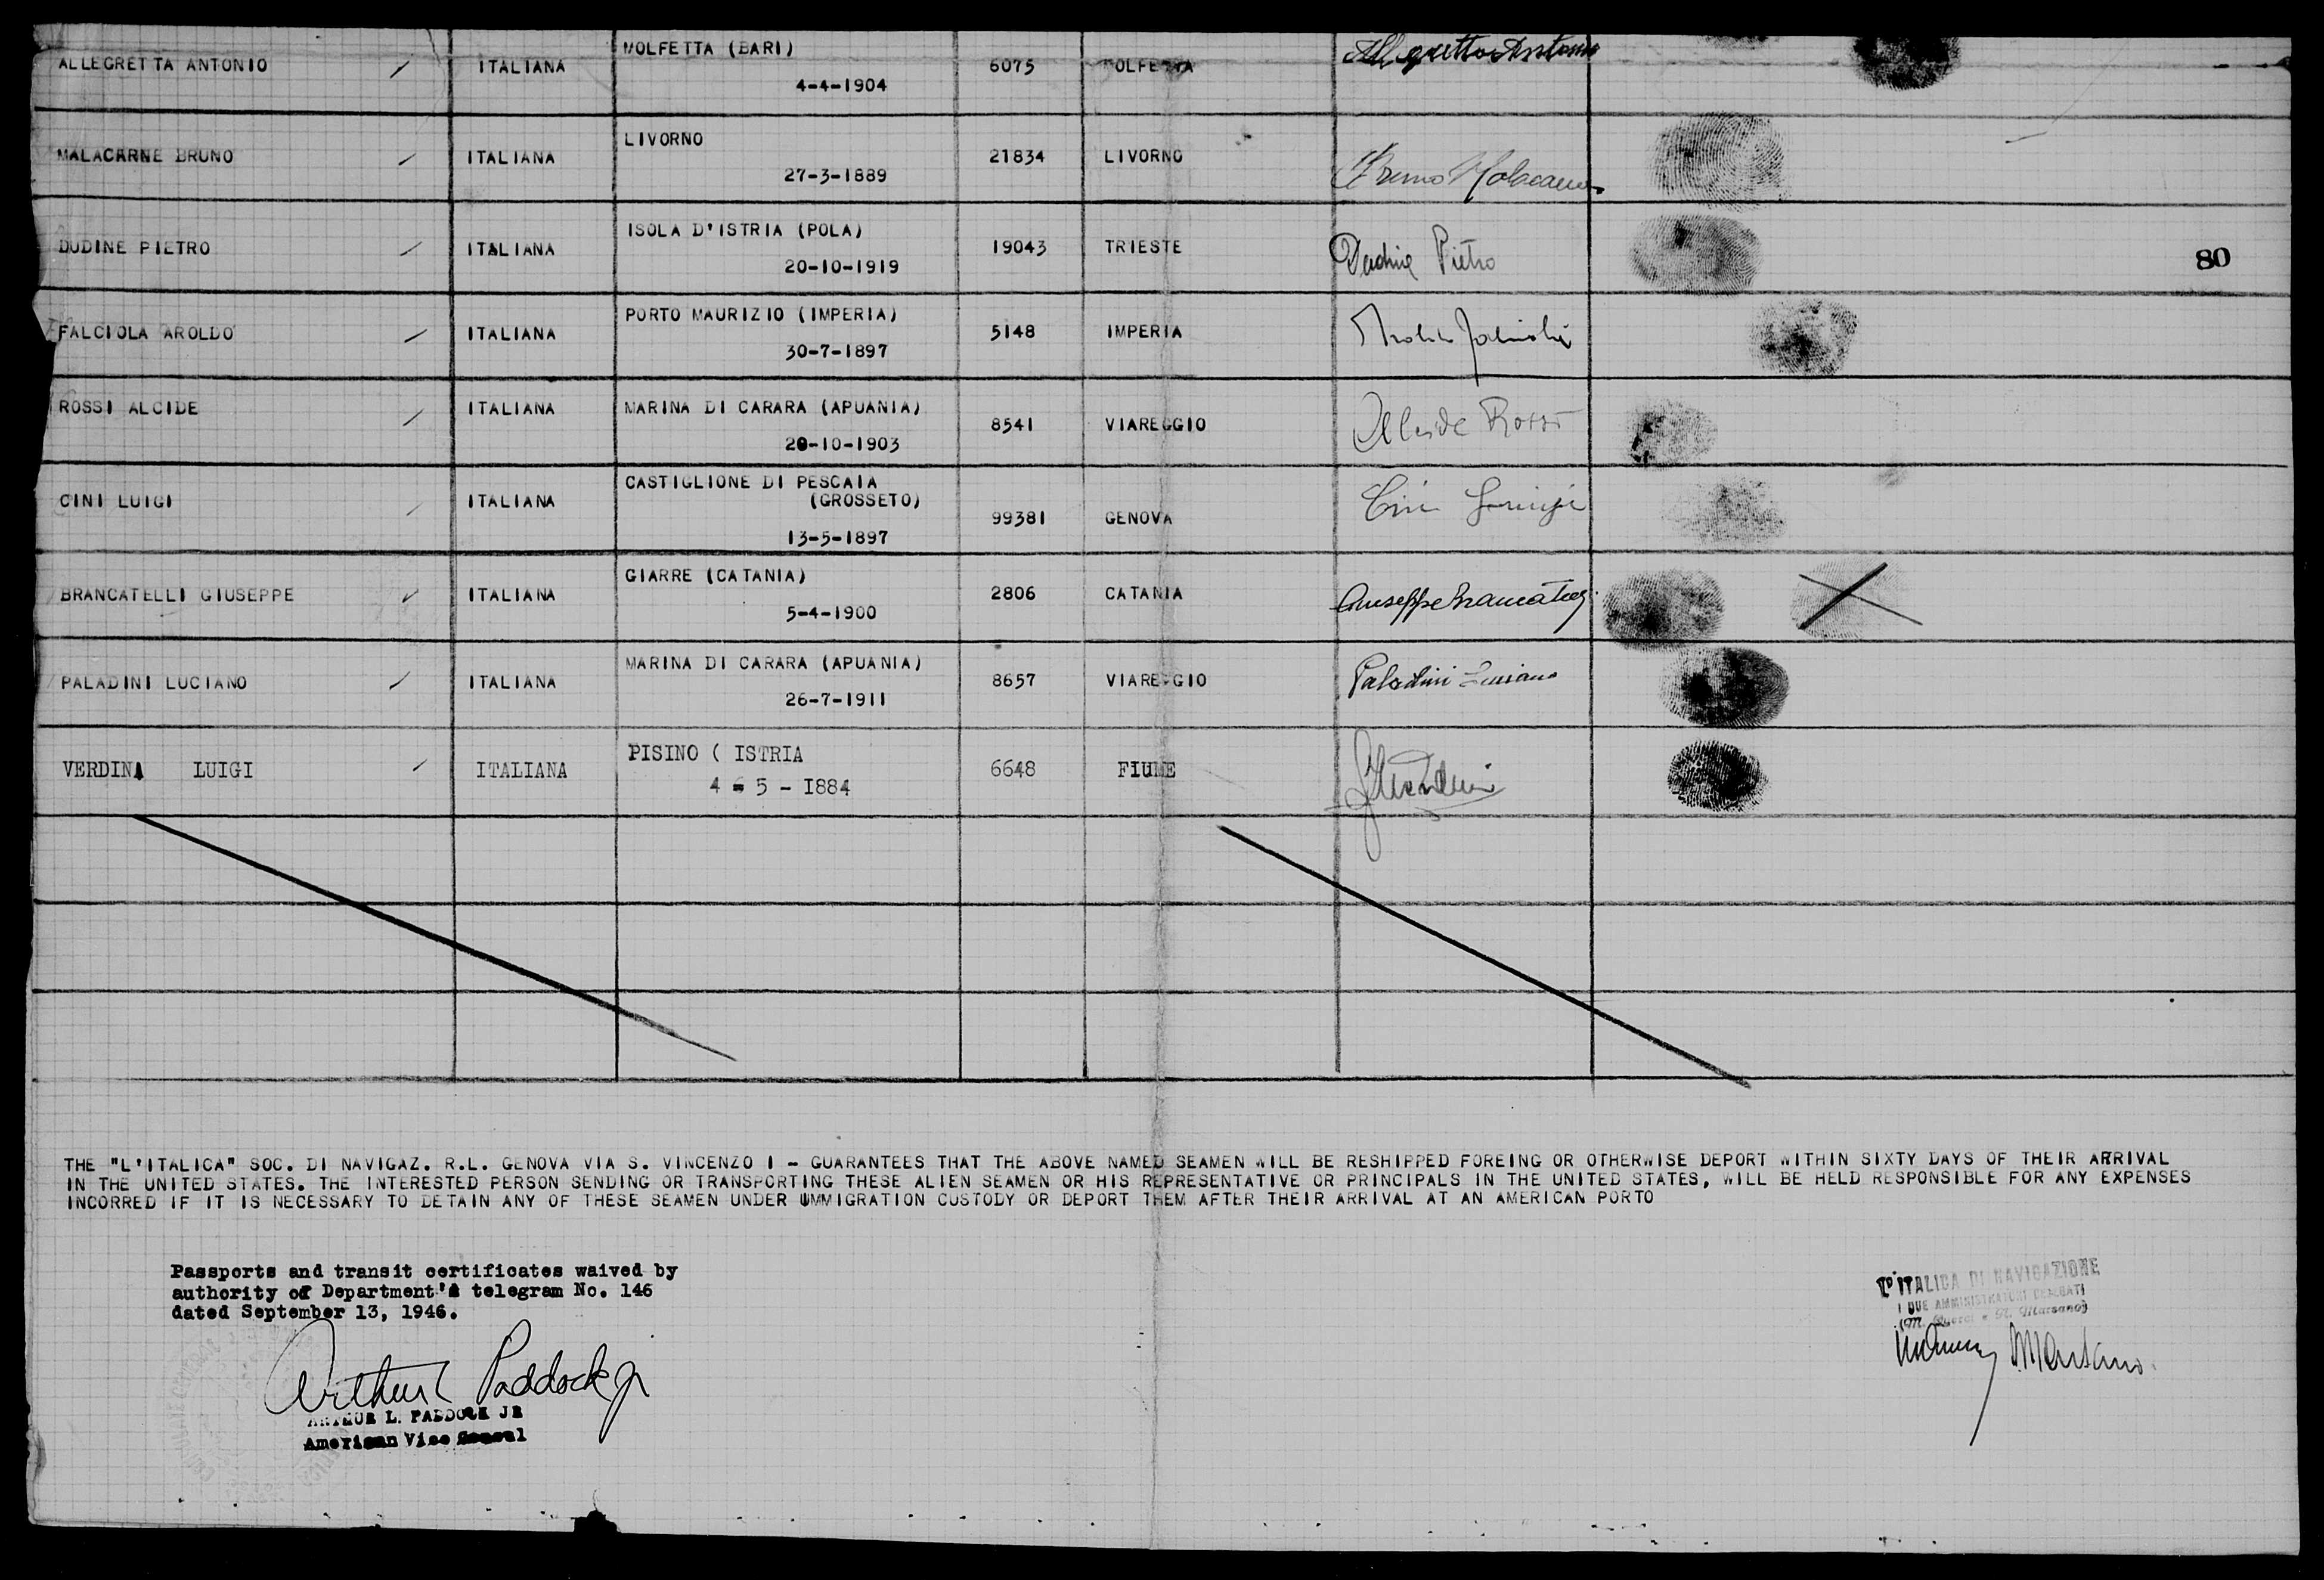 ALLEGRETTA ANTONIO / ITALIANA MOLFETTA (BARI) 4-4-1904 6075 MOLFETTA Allegretta Antonio
MALACARNE BRUNO / ITALIANA LIVORNO 27-3-1889 21834 LIVORNO Bruno Malacarne
DUDINE PIETRO / ITALIANA ISOLA D'ISTRIA (POLA) 20-10-1919 19043 TRIESTE Dudine Pietro
80
FALCIOLA AROLDO / ITALIANA PORTO MAURIZIO (IMPERIA) 30-7-1897 5148 IMPERIA
ROSSI ALCIDE / ITALIANA MARINA DI CARARA (APUANIA) 20-10-1903 8541 VIAREGGIO Alcide Rossi
CINI LUIGI / ITALIANA CASTIGLIONE DI PESCAIA (GROSSETO) 13-5-1897 99381 GENOVA Cini Luigi
BRANCATELLI GIUSEPPE ITALIANA GIARRE (CATANIA) 5-4-1900 2806 CATANIA Giuseppe Brancatelli
PALADINI LUCIANO / ITALIANA MARINA DI CARARA (APUANIA) 26-7-1911 8657 VIAREGGIO Paladini Luciano
VERDINI LUIGI / ITALIANA PISINO ( ISTRIA 4 - 5 - I884 6648 FIUME
THE "L'ITALICA" SOC. DI NAVIGAZ. R.L. GENOVA VIA S. VINCENZO I - GUARANTEES THAT THE ABOVE NAMED SEAMEN WILL BE RESHIPPED FOREING OR OTHERWISE DEPORT WITHIN SIXTY DAYS OF THEIR ARRIVAL
IN THE UNITED STATES. THE INTERESTED PERSON SENDING OR TRANSPORTING THESE ALIEN SEAMEN OR HIS REPRESENTATIVE OR PRINCIPALS IN THE UNITED STATES, WILL BE HELD RESPONSIBLE FOR ANY EXPENSES
INCORRED IF IT IS NECESSARY TO DETAIN ANY OF THESE SEAMEN UNDER UMMIGRATION CUSTODY OR DEPORT THEM AFTER THEIR ARRIVAL AT AN AMERICAN PORTO
Passports and transit certificates waived by
authority of Department's telegram No. 146
dated September 13, 1946.
Arthur L Paddock Jr
ARTHUR L. PADDOCK JR
American Vice Consul
L'ITALICA DI NAVIGAZIONE
I DUE AMMINISTRATORI DELEGATI
Marsano)
Marsano